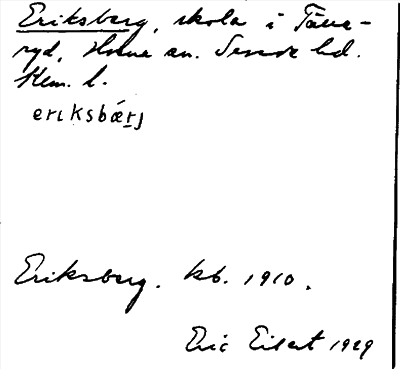 Eriksberg, skola i Tåne-
ryd, Horne sn. Sunds hd.
Klm. l.
eriksbǽrj
Eriksberg. kb. 1910.
Eric Eilert 1929